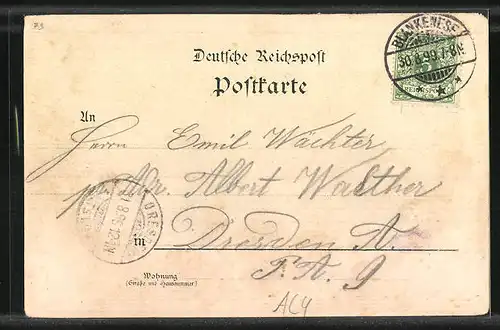 Deutsche Reichspost
Postkarte
BLANKENESE
An
Herrn Emil Wächter
pr. Adr. Albert Walther
DRESDEN
m Dresden A.
F. A. 9
Wohnung
(Straße und Hausnummer)
ACY